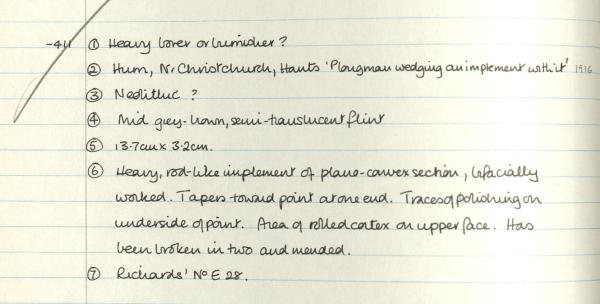 -411 ① Heavy borer or burnisher ?
② Hurn, Nr Christchurch, Hants 'Ploughman wedging an implement with it' 1916
③ Neolithic ?
④ Mid grey-brown, semi-translucent flint
⑤ 13.7cm x 3.2cm.
⑥ Heavy, rod-like implement of plano-convex section, bifacially
worked. Tapers toward point at one end. Traces of polishing on
underside of point. Area of rolled cortex on upper face. Has
been broken in two and mended.
⑦ Richards' No E 28.